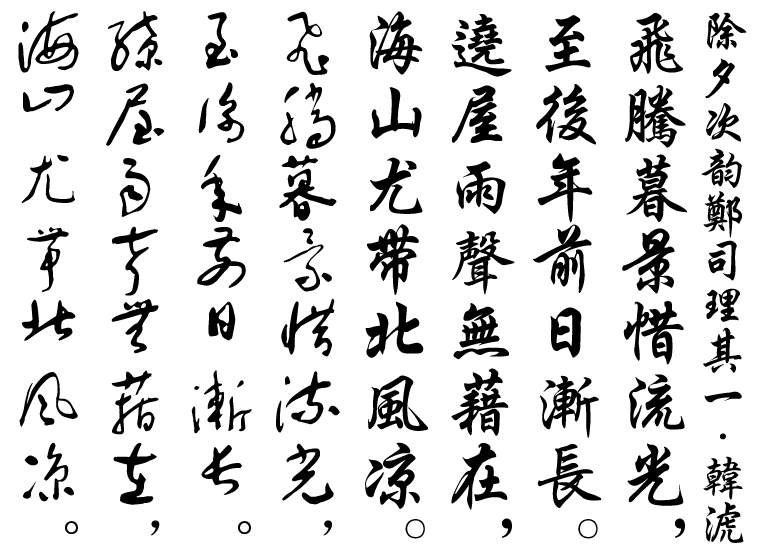 除夕次韵鄭司理其一·韓淲
飛騰暮景惜流光，
至後年前日漸長。
遶屋雨聲無藉在，
海山尤帶北風凉。
飛騰暮景惜流光，
至後年前日漸長。
遶屋雨聲無藉在，
海山尤帶北風凉。